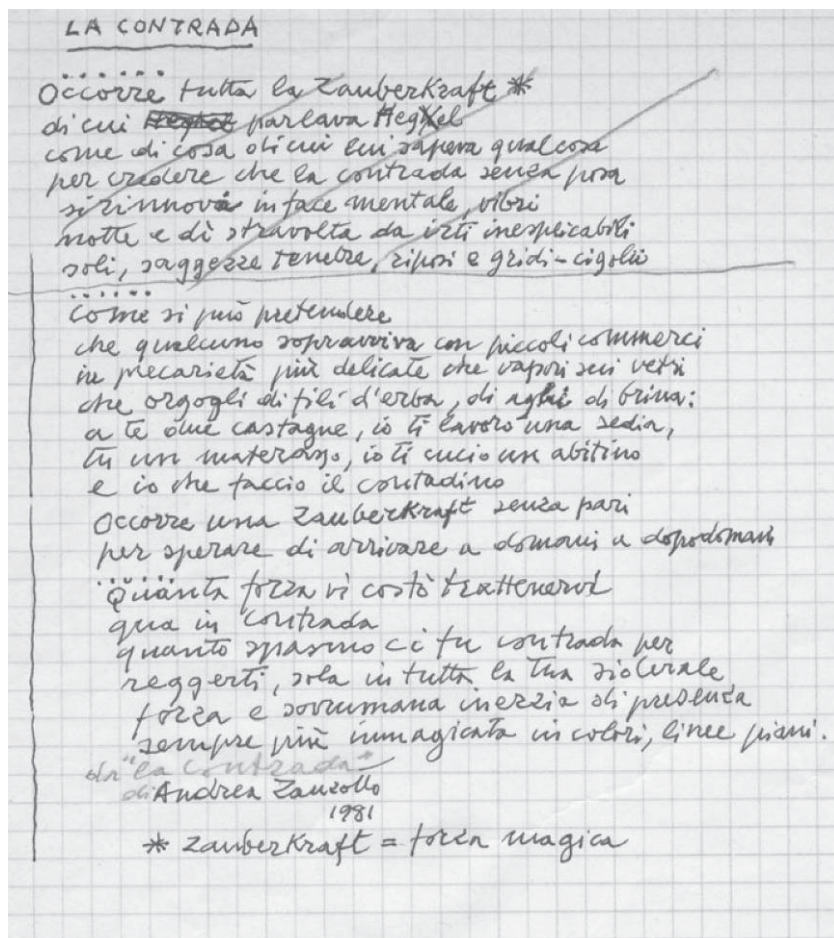 LA CONTRADA
.......
Occorre tutta la ZauberKraft *
di cui parlava Hegel
come di cosa di cui lui sapeva qualcosa
per credere che la contrada senza posa
si rinnovi in face mentale, vibri
notte e dì stravolta da irti inesplicabili
soli, saggezze tenebre, riposi e gridi-cigolii
......
come si può pretendere
che qualcuno sopravviva con piccoli commerci
in precarietà più delicate che vapori sui vetri
che orgogli di fili d'erba, di aghi di brina:
a te due castagne, io ti lavoro una sedia,
tu un materasso, io ti cucio un abitino
e io che faccio il contadino
Occorre una ZauberKraft senza pari
per sperare di arrivare a domani a dopodomani
......
Quanta forza vi costò trattenervi
qua in contrada
quanto spasmo ci fu contrada per
reggerti, sola in tutta la tua
forza e sovrumana inerzia di presenza
sempre più immagicata in colori, linee piani.
da "la contrada"
di Andrea Zanzotto
1981
* ZauberKraft = forza magica